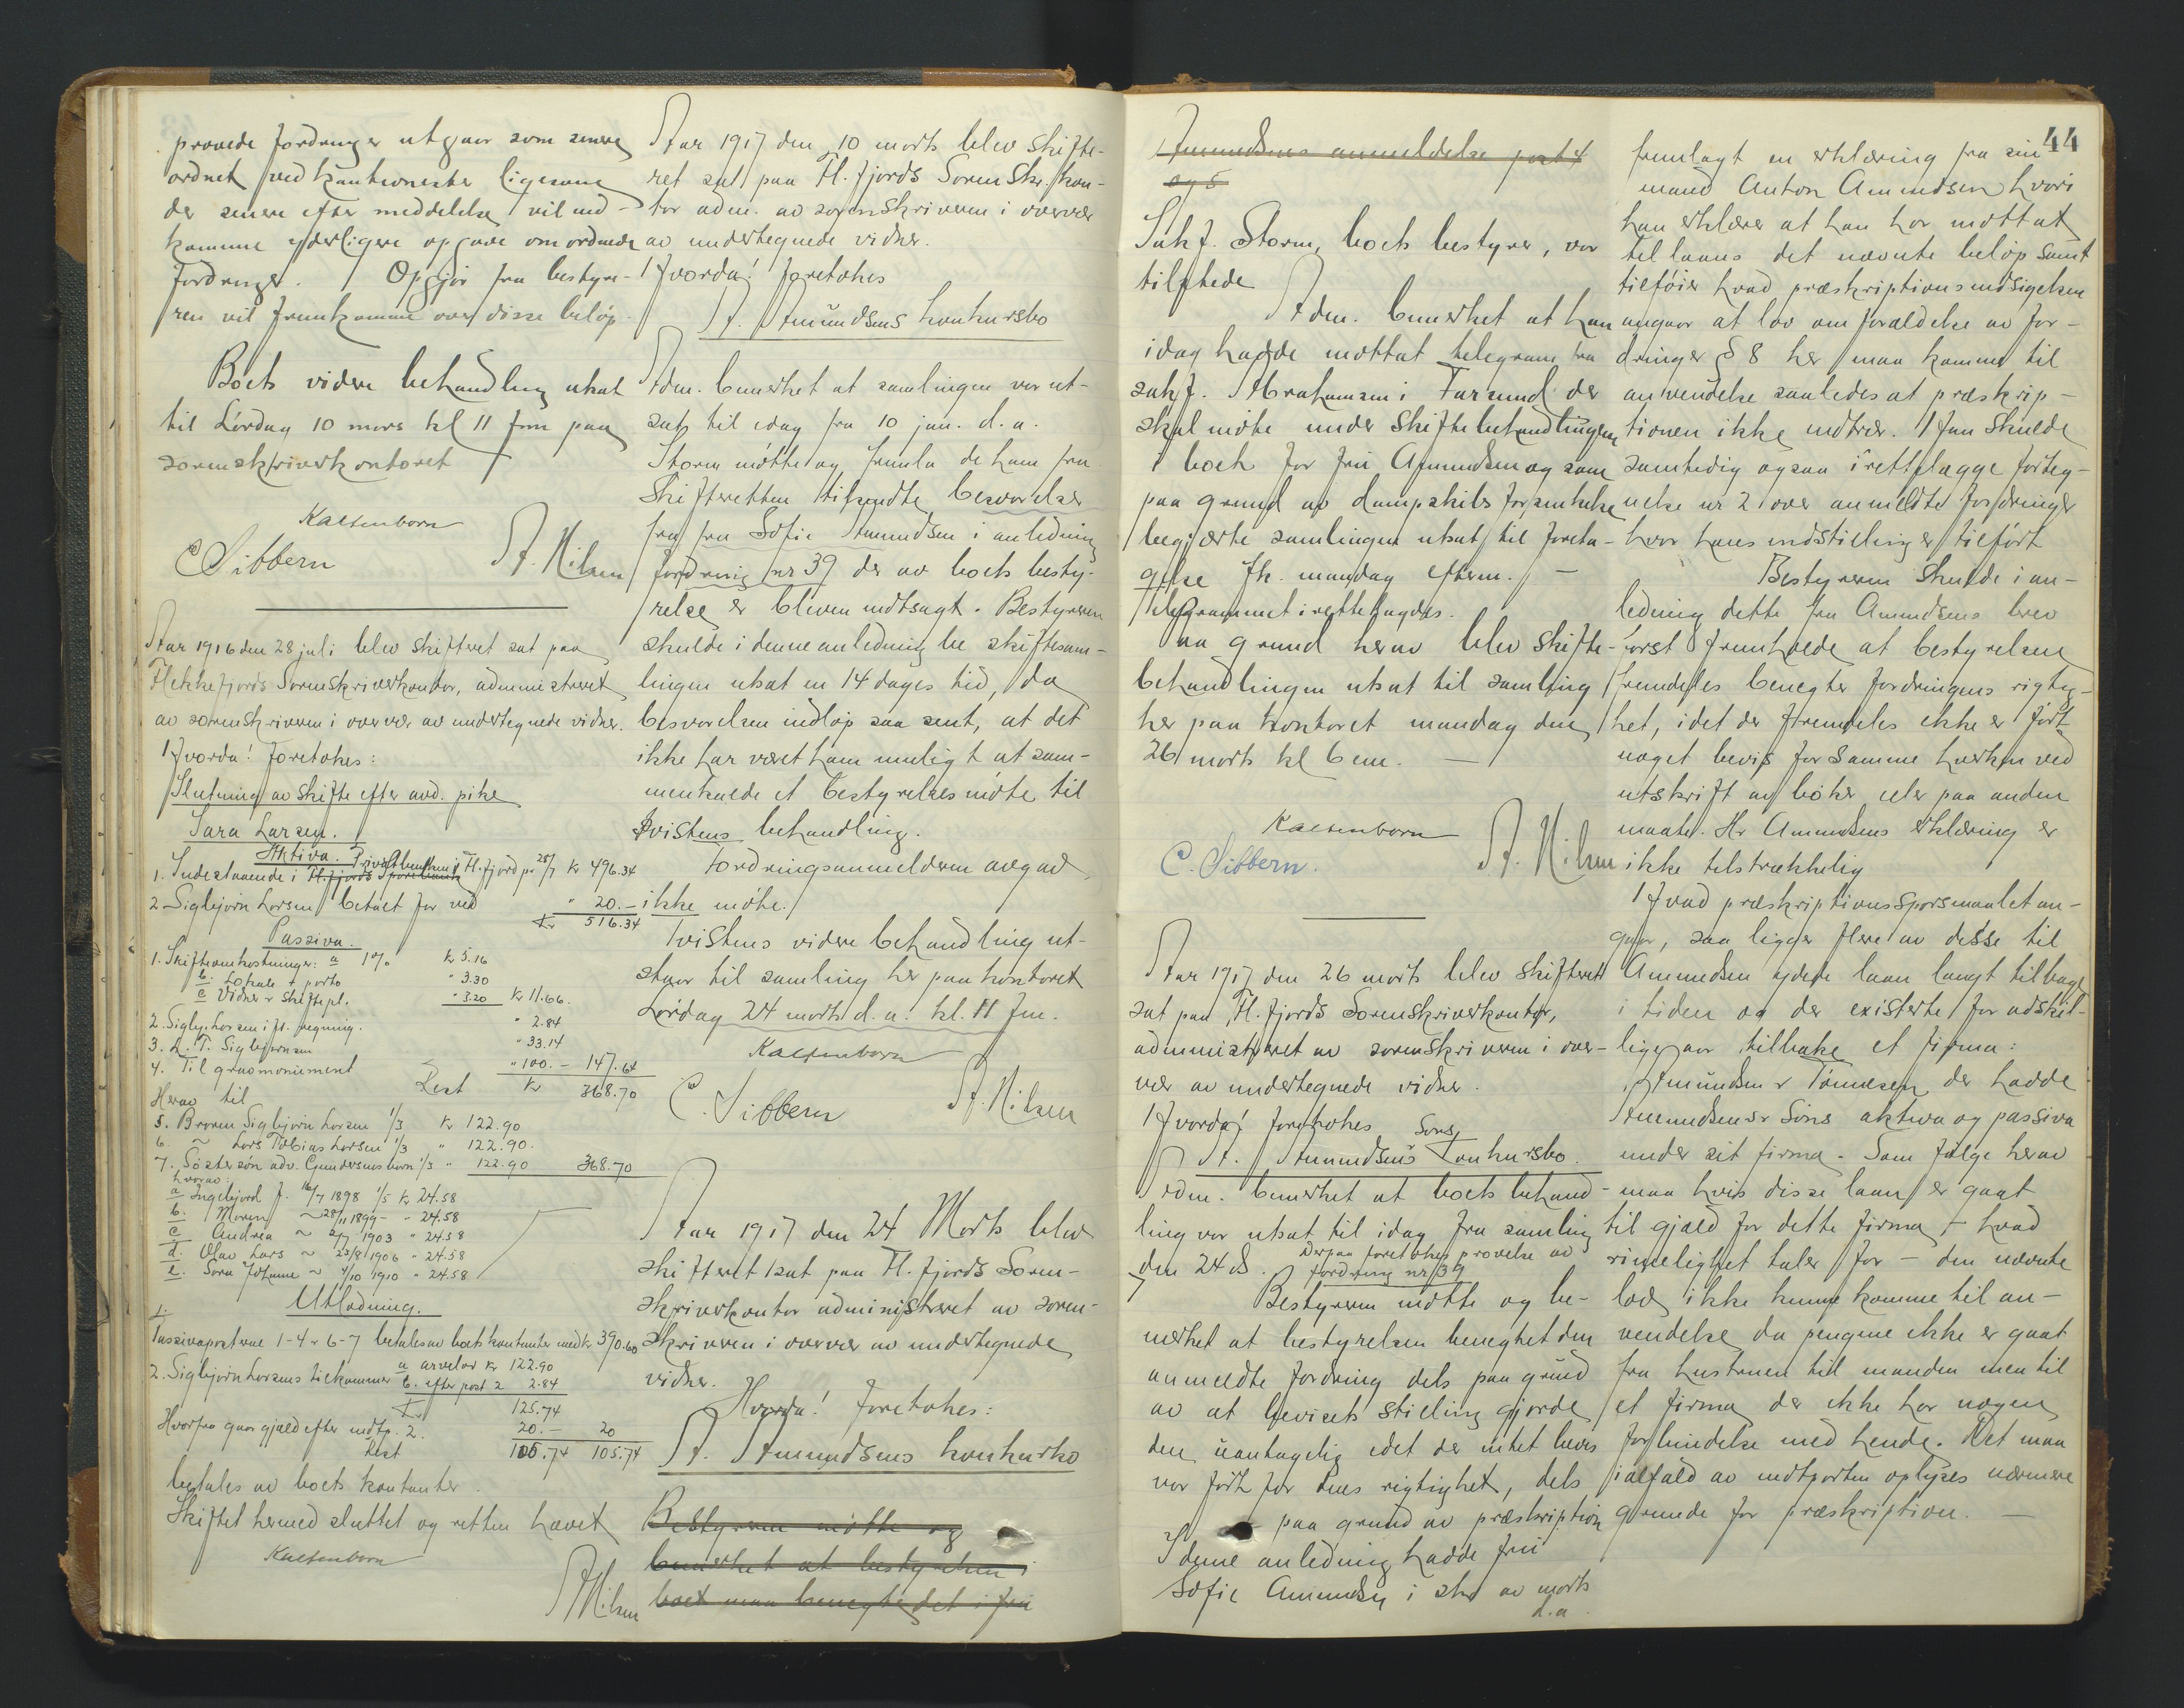 prøvede fordringer utgaar som senere
ordnet ved kautionister ligesom
der senere efter meddelelse vil ind-
komme yderligere opgave om ordnede
fordringer. Opgjør fra bestyre-
ren vil fremkomme over disse beløp.
Boets videre behandling utsat
til Lørdag 10 mars kl 11 fm paa
sorenskriverkontoret
Kaltenborn
C Sibbern A. Nilsen
Aar 1916 den 28 juli blev skifteret sat paa
Flekkefjords Sorenskriverkontor, administreret
av sorenskriveren i overvær av undertegnede vidner.
Hvorda! foretokes:
Slutning av skifte efter avd. pike
Sara Larsen.
Aktiva.
1. Indestaaende i Fl.fjords Sparebank Privatbanken i Fl.fjord pr 28/7 kr 496.34
2 Sigbjørn Larsen betalt for ved " 20.-
Kr 516.34
Passiva.
1. Skifteomkostninger: a 1% kr 5.16
b. Lokale + porto " 3.30
c Vidner & skiftepl. " 3.20 kr 11.66.
2. Sigbj. Larsen ifl. regning. " 2.84
3. L. T. Sigbjørnsen " 33.14
4. Til gravmonument " 100.- 147.64
Rest kr 368.70
Herav til
5. Broren Sigbjørn Larsen 1/3 kr 122.90
6. ~ Lars Tobias Larsen 1/3 " 122.90.
7. Søstersøn adv. Gundersens barn 1/3 " 122.90 368.70
hvorav:
a Ingebjord f. 16/7 1898 1/5 kr 24.58
b. Maren ~ 28/11 1899 - " 24.58
c Andrea ~ 2/7 1903 " 24.58
d. Olav Lars ~ 23/8 1906 " 24.58
e. Sara Johanne ~ 4/10 1910 " 24.58
Utlodning.
1.
Passivaposterne 1-4 & 6-7 betales av boets kontanter med kr 390.60
2. Sigbjørn Larsens tilkommer a arvelod kr 122.90
b. efter post 2 2.84
Kr 125.74
Hvorfra gaar gjæld efter indtp. 2. 20.- 20
Rest 105.74 105.74
betales av boets kontanter.
Skiftet hermed sluttet og retten hævet
Kaltenborn
A Nilsen
Aar 1917 den 10 marts blev skifte-
ret sat paa Fl.fjords Sorenskr.kon-
tor adm. av sorenskriveren i overvær
av undertegnede vidner.
Hvorda! foretokes
A. Amundsens konkursbo
Adm. bemerket at samlingen var ut-
sat til idag fra 10 jan. d.a.
Storm møtte og fremla de ham fra
Skifteretten tilsendte besvarelser
fra fru Sofie Amundsen i anledning
fordring nr 39 der av boets besty-
relse er bleven indtsagt. Bestyreren
skulde i denne anledning be skiftesam-
lingen utsat en 14 dages tid, da
besvarelsen indløp saa sent, at det
ikke har været ham muligt at sam-
menkalde et bestyrelsesmøte til
tvistens behandling.
Fordringsanmelderen avgad
ikke møte.
Tvistens videre behandling ut-
staar til samling her paa kontoret
Lørdag 24 marts d.a. kl. 11 fm.
Kaltenborn
C. Sibbern A. Nilsen
Aar 1917 den 24 Marts blev
skifteret sat paa Fl.fjords Soren-
skriverkontor administreret av soren-
skriveren i overvær av undertegnede
vidner.
Hvorda! foretokes:
A. Amundsens konkursbo
Bestyreren møtte og
bemerket at bestyrelsen i
boet maa benegte det i fru
44
Amundsens anmeldelse post 4
og 5
Sakf. Storm, boets bestyrer, var
tilstede
Adm. bemerket at han
idag hadde mottat telegram fra
sakf. Abrahamsen i Farsund der
skal møte under skiftebehandlingen
i boet for fru Amundsen og som
paa grund av dampskibs forsinkelse
begjærte samlingen utsat til foreta-
gelse fk. mandag efterm. -
Telegrammet irettelagdes.
Paa grund herav blev skifte-
behandlingen utsat til samling
her paa kontoret mandag den
26 marts kl 6 em. -
Kaltenborn
C. Sibbern. A. Nilsen
Aar 1917 den 26 marts blev skifteret
sat paa Fl.fjords Sorenskriverkontor,
administreret av sorenskriveren i over-
vær av undertegnede vidner.
Hvorda! foretokes
A. Amundsens Søns konkursbo.
Adm. bemerket at boets behand-
ling var utsat til idag fra samling
den 24 ds. Derpaa foretokes prøvelse av
fordring nr 39
Bestyreren møtte og be-
merket at bestyrelsen beneghet den
anmeldte fordring dels paa grund
av at bevisets stilling gjorde
den uantagelig idet der intet bevis
var ført for dens rigtighet, dels
paa grund av præskription
I denne anledning hadde fru
Sofie Amundsen i skr av marts
d.a.
fremlagt en erklæring fra sin
mand Anton Amundsen hvori
han erklærer at han har mottat
til laans det nævnte beløp samt
tilføier hvad præskriptionsindsigelsen
angaar at lov om forældelse av for-
dringer § 8 her maa komme til
anvendelse saaledes at præskrip-
tionen ikke indtrær. Han skulde
samtidig ogsaa irettelægge forteg-
nelse nr 2 over anmeldte fordringer
hvor hans indstilling er tilført
Bestyreren skulde i an-
ledning dette fru Amundsens brev
først fremholde at bestyrelsen
fremdeles benegter fordringens rigtig-
het, idet der fremdeles ikke er ført
noget bevis for samme hverken ved
utskrift av bøker eler paa anden
maate. Hr Amundsens erklæring er
ikke tilstrækkelig
Hvad præskriptionsspørsmaalet an-
gaar, saa ligger flere av disse til
Amundsen ydede laan langt tilbage
i tiden og der existerte for adskil-
lige aar tilbake et firma:
Amundsen & Tønnesen der hadde
Amundsens & Søns aktiva og passiva
under sit firma. Som følge herav
maa hvis disse laan er gaat
til gjæld for dette firma - hvad
rimelighet taler for - den nævnte
lov ikke kunne komme til an-
vendelse da pengene ikke er gaat
fra hustruen til manden men til
et firma der ikke har nogen
forbindelse med hende. Det maa
ialfald av indtparten oplyses nærmere
grunde for præskription. -